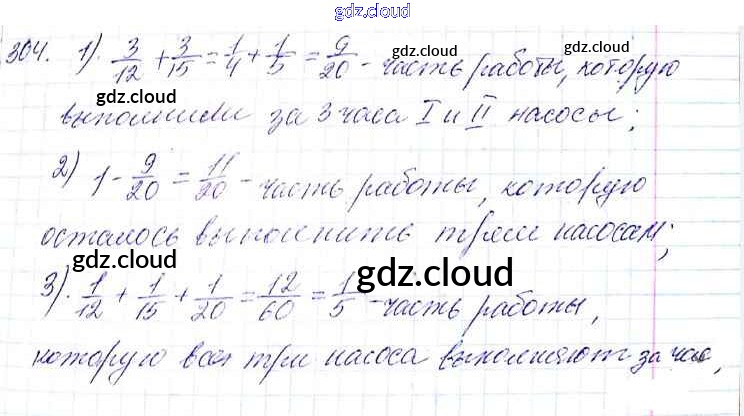 gdz.cloud
304. 1). 3/12 + 3/15 = 1/4 + 1/5 = 9/20 - часть работы, которую
gdz.cloud
выполнили за 3 часа I и II насосы;
gdz.cloud
2) 1 - 9/20 = 11/20 - часть работы, которую
осталось выполнить трем насосам;
gdz.cloud
gdz.cloud
3). 1/12 + 1/15 + 1/20 = 12/60 = 1/5 - часть работы,
которую все три насоса выполняют за час,